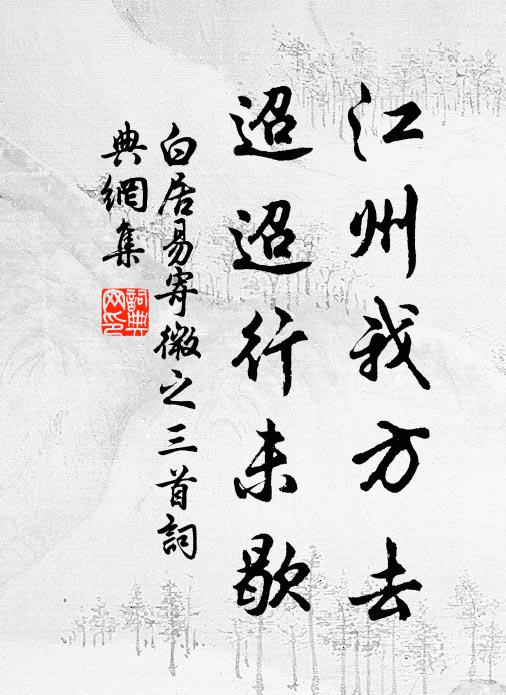 江州我方去
迢迢行未歇
白居易寄微之三首詞
典網集
詞典网印